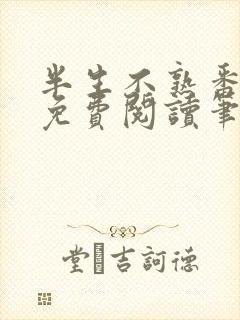 半生不熟番
免費閱讀筆
堂吉訶德